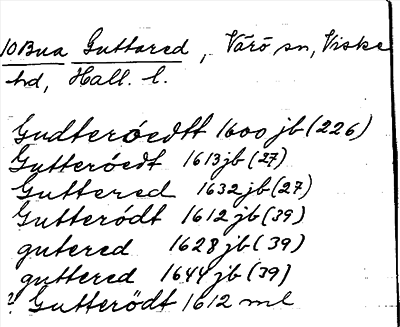 10 Bua Guttared, Värö sn, Viske
hd, Hall. l.
Gudteröedtt 1600 jb (226)
Gutteröedt 1613 jb (27)
Guttered 1632 jb (27)
Gutterödt 1612 jb (39)
gutered 1628 jb (39)
guttered 1644 jb (39)
? Gutterödt 1612 ml